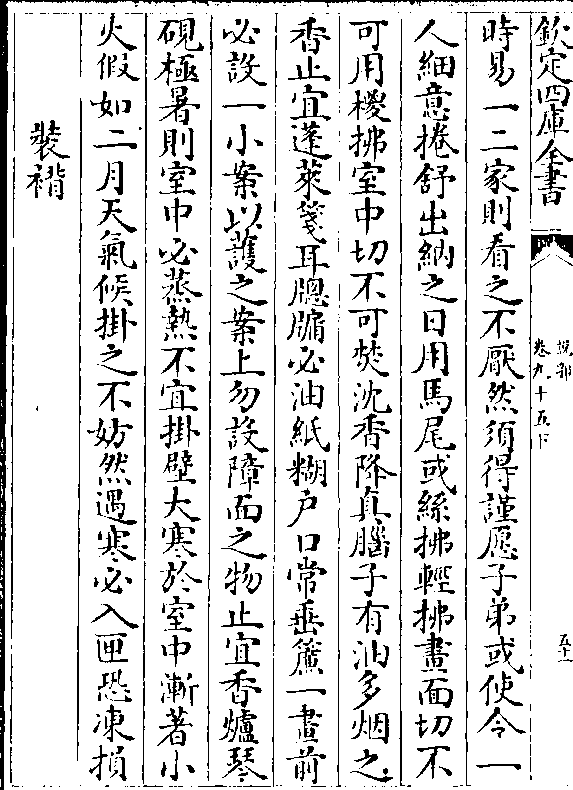 欽定四庫全書
說郛
卷九十五下
五十一
時易一二家則看之不厭然須得謹愿子弟或使令一
人細意捲舒出納之日用馬尾或絲拂輕拂畫面切不
可用椶拂室中切不可焚沈香降真腦子有油多烟之
香止宜蓬萊箋耳牎牖必油紙糊戸口常垂簾一畫前
必設一小案以䕶之案上勿設障面之物止宜香爐琴
硯極暑則室中必蒸熱不宜掛壁大寒於室中漸著小
火假如二月天氣候掛之不妨然遇寒必入匣恐凍損
裝褙